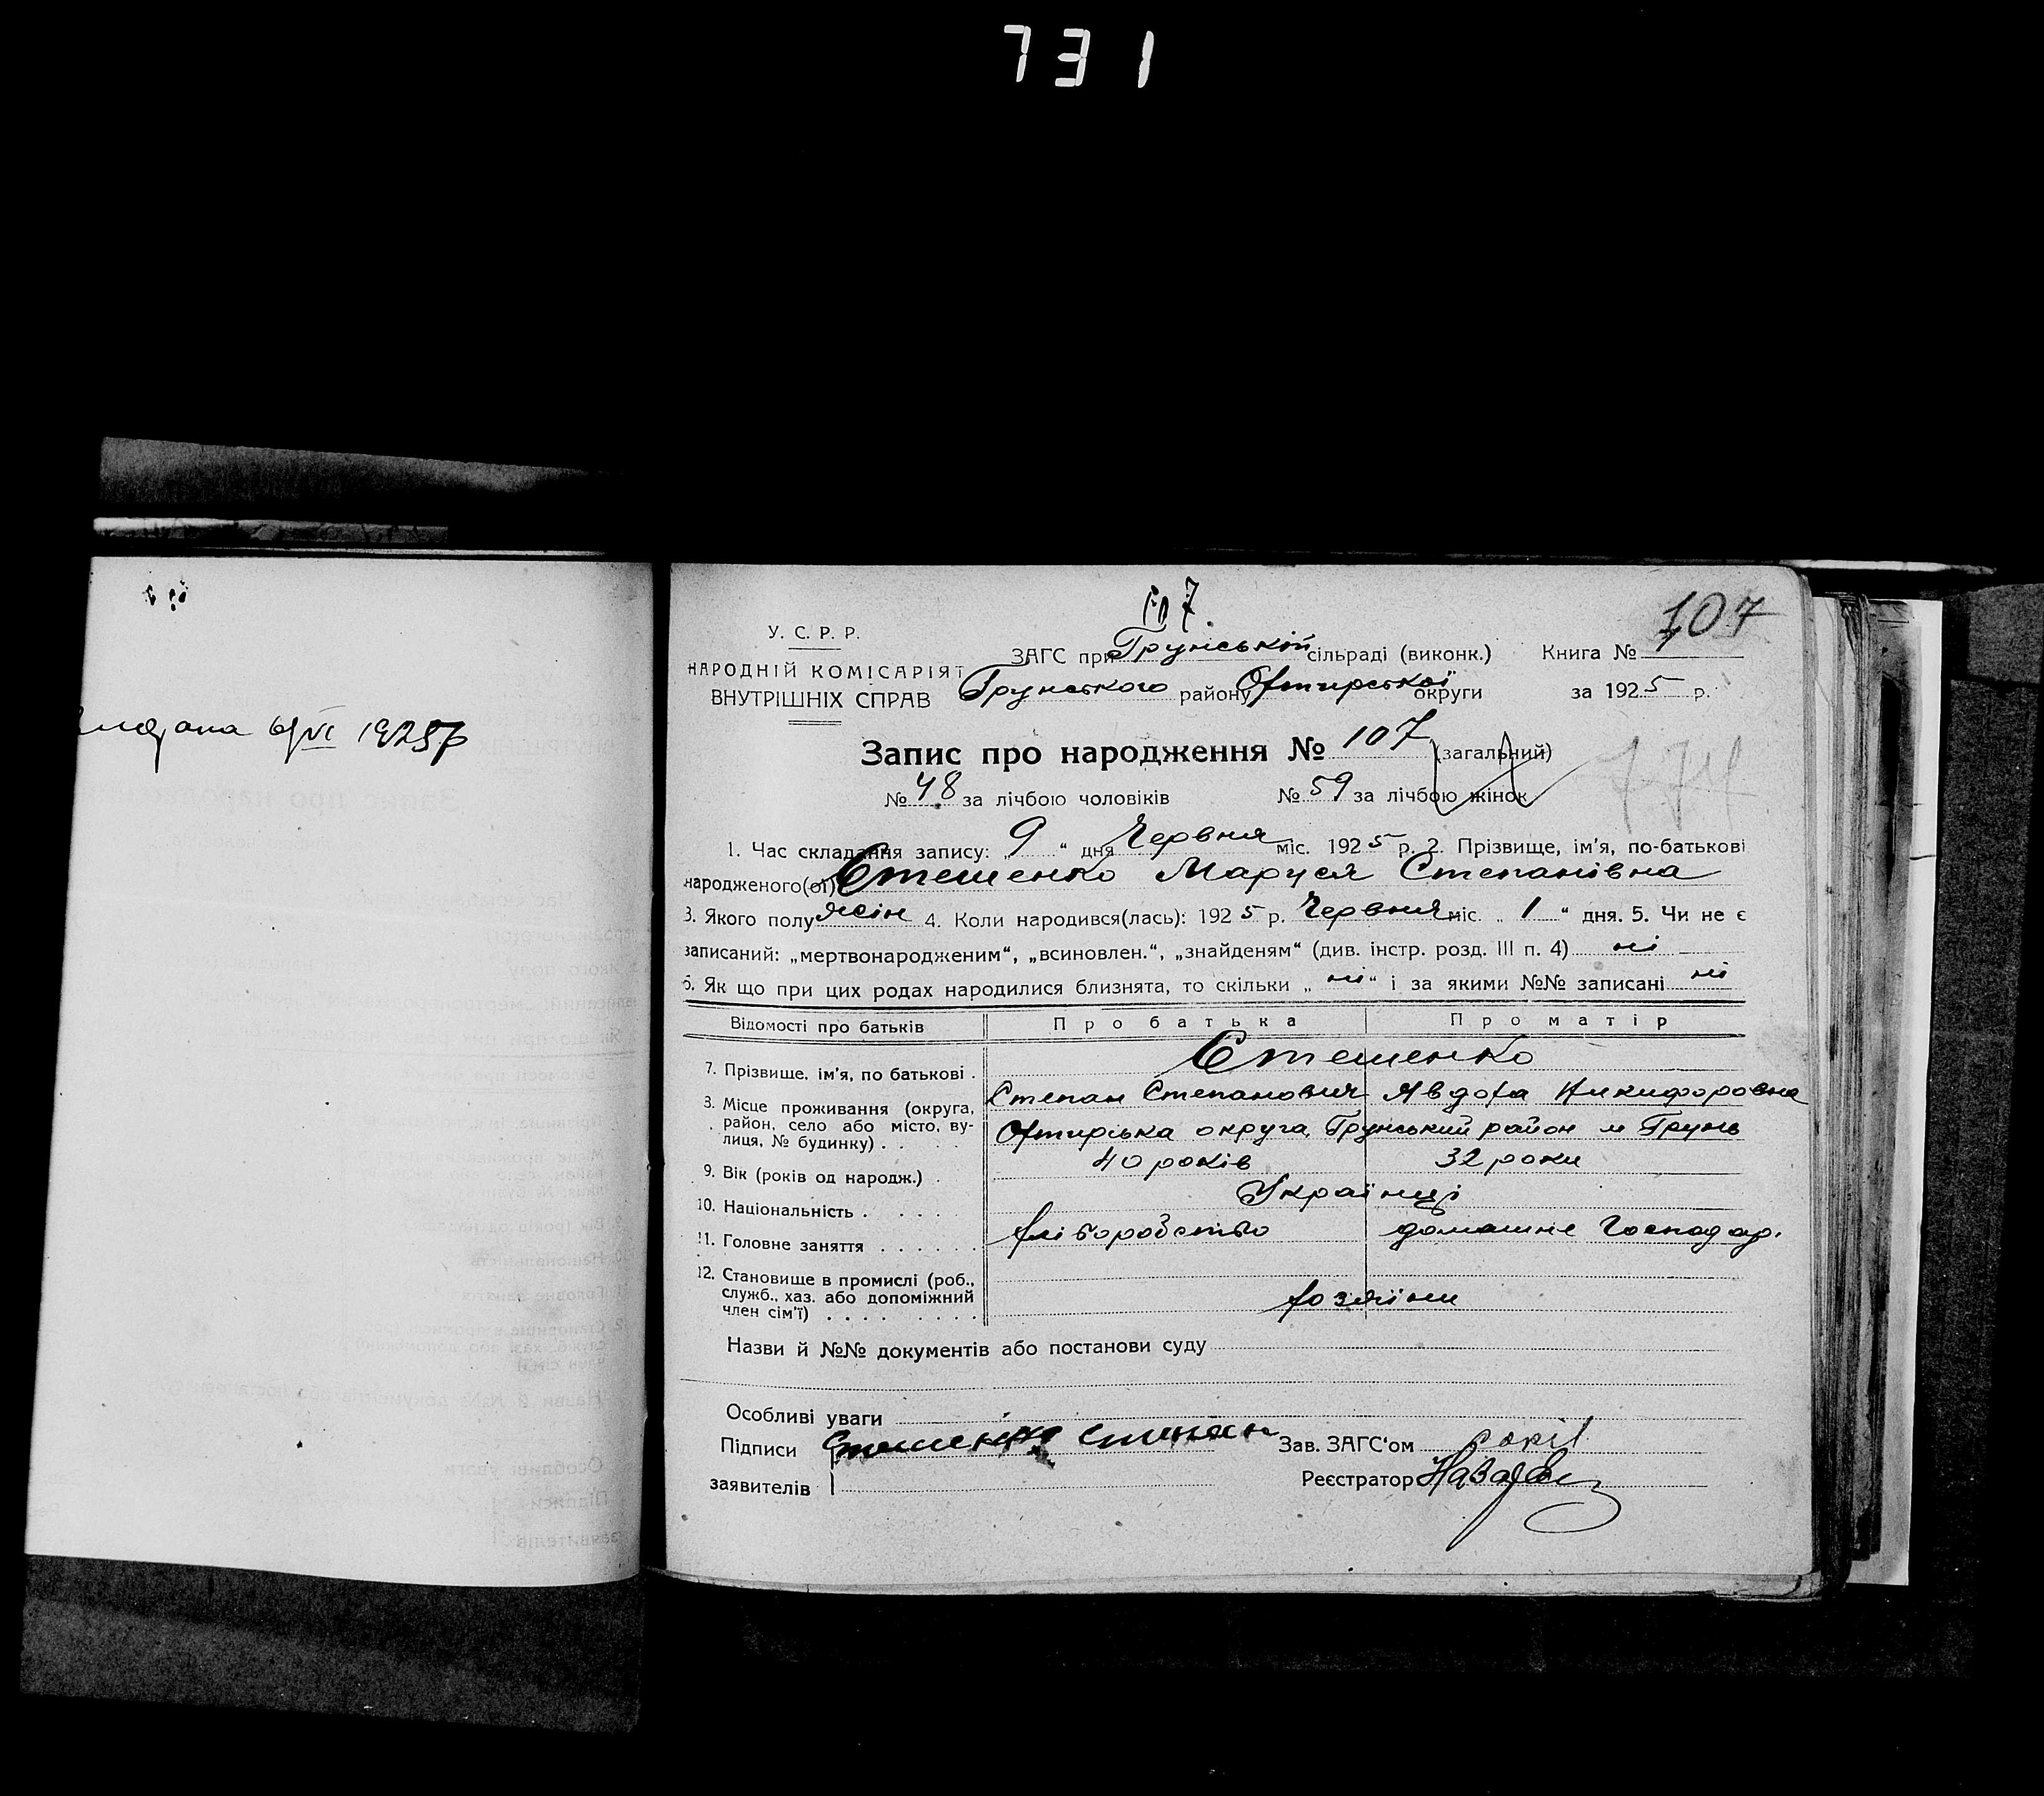 731
6/VI 1925р
107
107
У. С. Р. Р.
НАРОДНІЙ КОМІСАРІЯТ
ВНУТРІШНІХ СПРАВ
ЗАГС при Грунській сільраді (виконк.) Книга №
Грунського району Охтирської округи за 1925 р.
Запис про народження № 107 (загальний)
№ 48 за лічбою чоловіків № 59 за лічбою жінок
774
1. Час складання запису: „ 9 “ дня Червня міс. 1925 р. 2. Прізвище, ім'я, по-батькові
народженого(ої) Стешенко Маруся Степанівна
3. Якого полу жін 4. Коли народився(лась): 1925 р. Червня міс. „ 1 “ дня. 5. Чи не є
записаний: „мертвонародженим“, „всиновлен.“, „знайденям“ (див. інстр. розд. III п. 4) ні
6. Як що при цих родах народилися близнята, то скільки „ ні “ і за якими №№ записані ні
Відомості про батьків Про батька Про матір
Стешенко
7. Прізвище, ім'я, по батькові . Степан Степанович Явдоха Никифоровна
8. Місце проживання (округа, район, село або місто, ву-
лиця, № будинку) . . Охтирська округа, Грунський район м Грунь
9. Вік (років од народж.) . 40 років 32 роки
10. Національність . . . . . Українці
11. Головне заняття . . . . . . хліборобство домашне господар.
12. Становище в промислі (роб.,
служб., хаз. або допоміжний
член сім'ї) . . . . . . . . хозяїни
Назви й №№ документів або постанови суду
Особливі уваги
Підписи Стешенко Степан Зав. ЗАГС'ом
заявителів Реєстратор